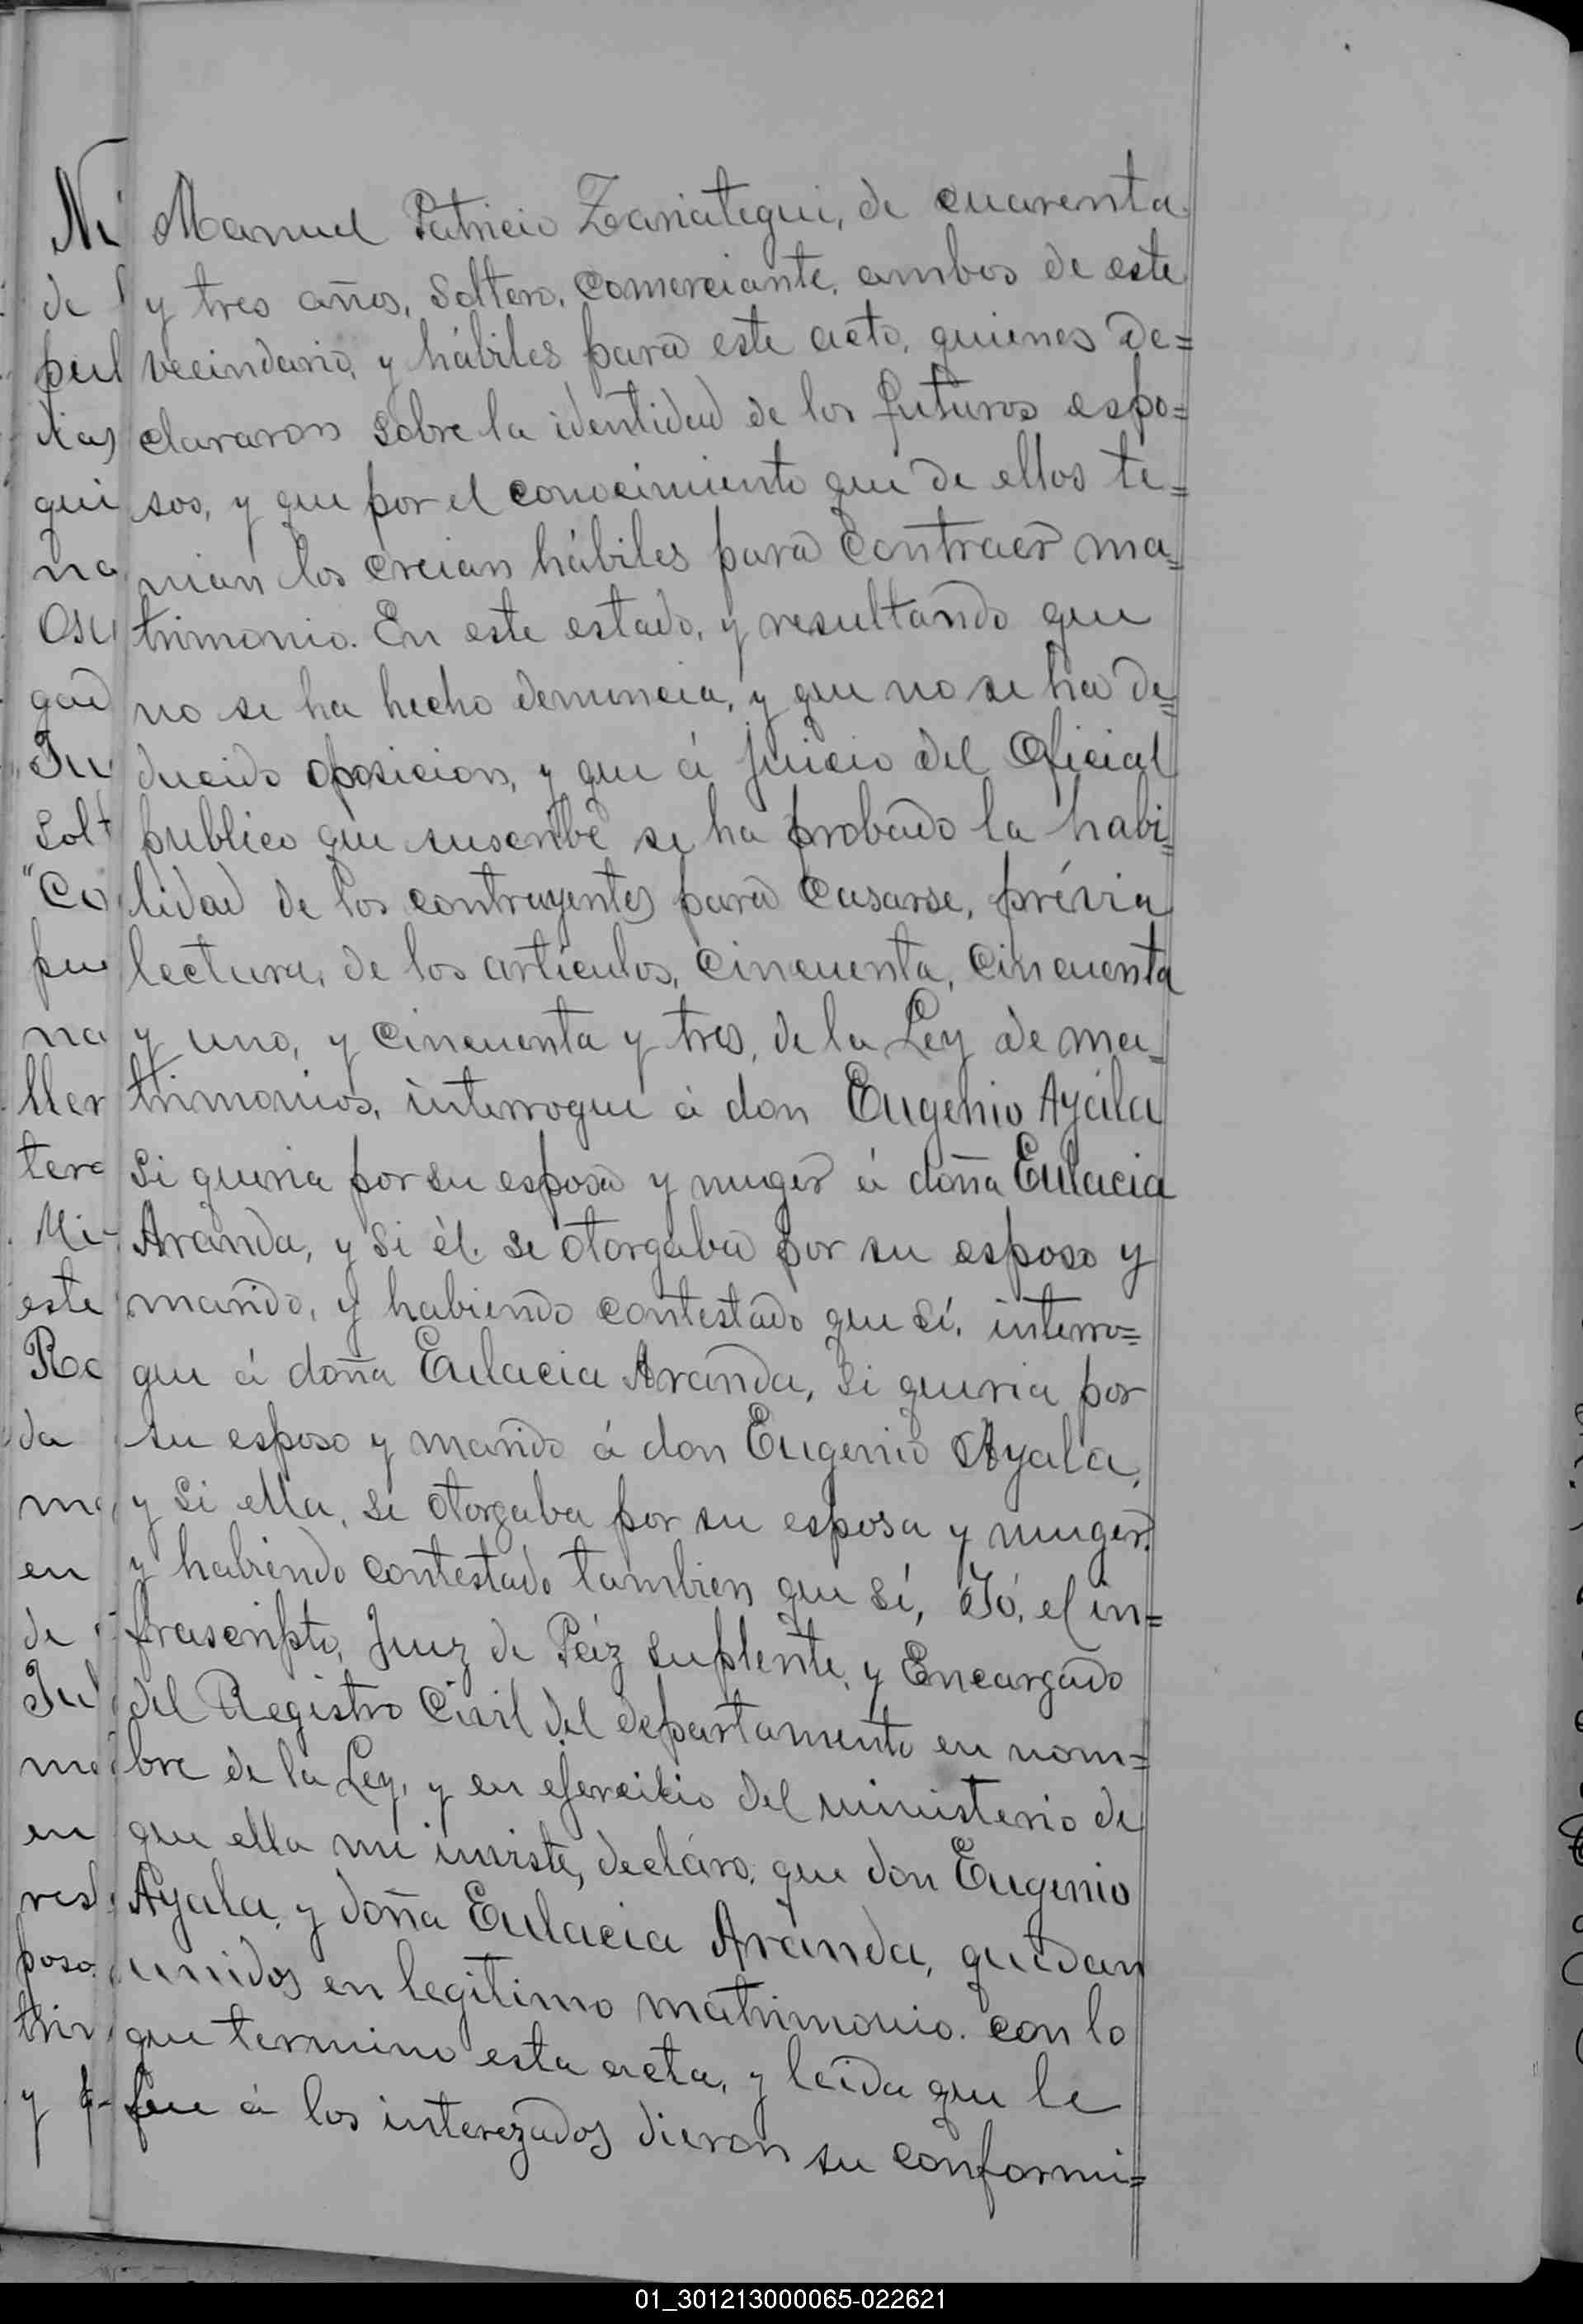 Manuel Patricio Zariategui, de cuarenta
y tres años, Soltero, Comerciante, ambos de este
vecindario, y hábiles para este acto, quienes de=
clararon sobre la identidad de los futuros espo=
sos, y que por el conocimiento que de ellos te=
nian los creian hábiles para contraer ma=
trimonio. En este estado, y resultando que
no se ha hecho denuncia, y que no se ha de=
ducido oposicion, y que á juicio del Oficial
publico que suscribe se ha probado la habi=
lidad de los contrayentes para casarse, prévia
lectura, de los artículos, cincuenta, cincuenta
y uno, y cincuenta y tres, de la Ley de ma=
trimonios, interrogué á don Eugenio Ayala
si queria por su esposa y muger á doña Eulacia
Aranda, y si él se otorgaba por su esposo y
marido, y habiendo contestado que sí, interro=
gue á doña Eulacia Aranda, si queria por
su esposo y marido á don Eugenio Ayala,
y si ella, se otorgaba por su esposa y muger,
y habiendo contestado tambien que sí, Yó, el in=
frascripto, Juez de Páz suplente, y Encargado
del Registro Civil del departamento en nom=
bre de la Ley, y en ejercicio del ministerio de
que ella me inviste, decláro, que don Eugenio
Ayala, y doña Eulacia Aranda, quedan
unidos en legitimo matrimonio. con lo
que termino esta acta, y leida que le
fue á los interezados dieron su conformi=
01_301213000065-022621